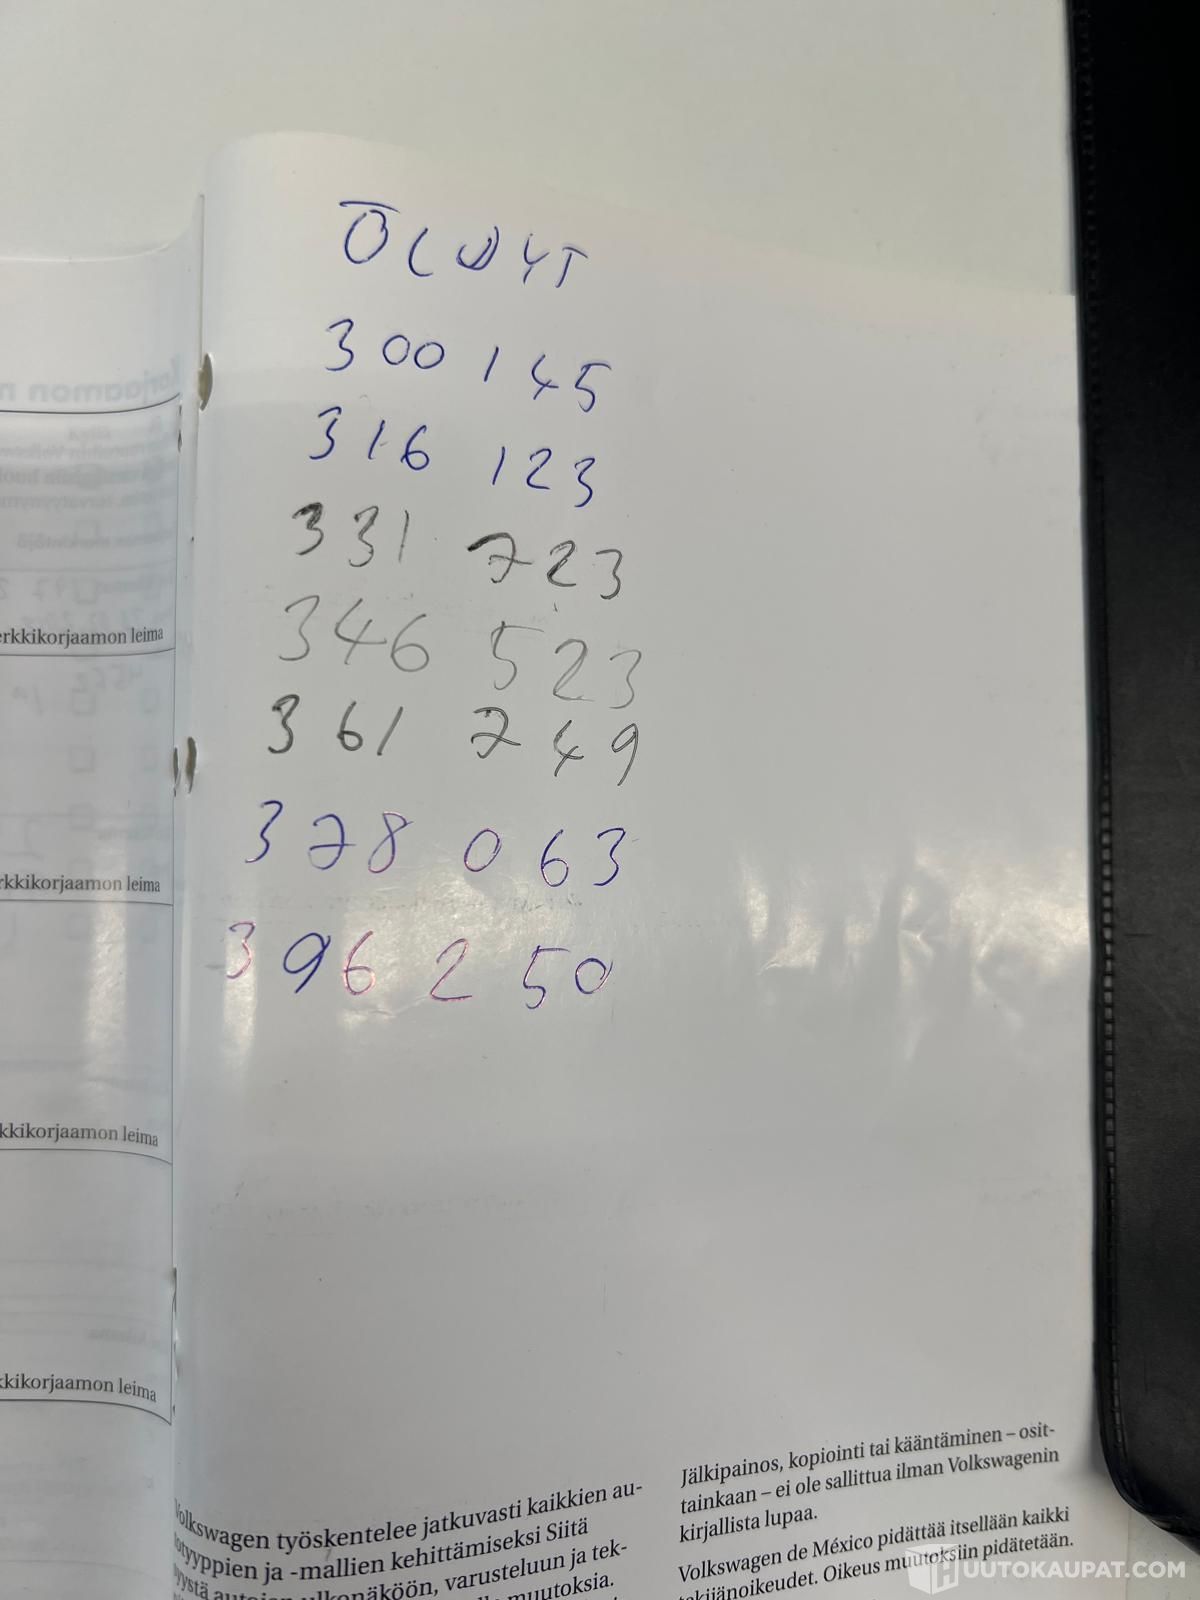 ÖLJYT
300 145
316 123
331 723
346 523
361 749
378 063
396 250
erkkikorjaamon leima
rkkikorjaamon leima
kkikorjaamon leima
kkikorjaamon leima
Volkswagen työskentelee jatkuvasti kaikkien au-
otyyppien ja -mallien kehittämiseksi Siitä
syystä autojen ulkonäköön, varusteluun ja tek-
muutoksia.
Jälkipainos, kopiointi tai kääntäminen – osit-
tainkaan – ei ole sallittua ilman Volkswagenin
kirjallista lupaa.
Volkswagen de México pidättää itsellään kaikki
tekijänoikeudet. Oikeus muutoksiin pidätetään.
HUUTOKAUPAT.COM